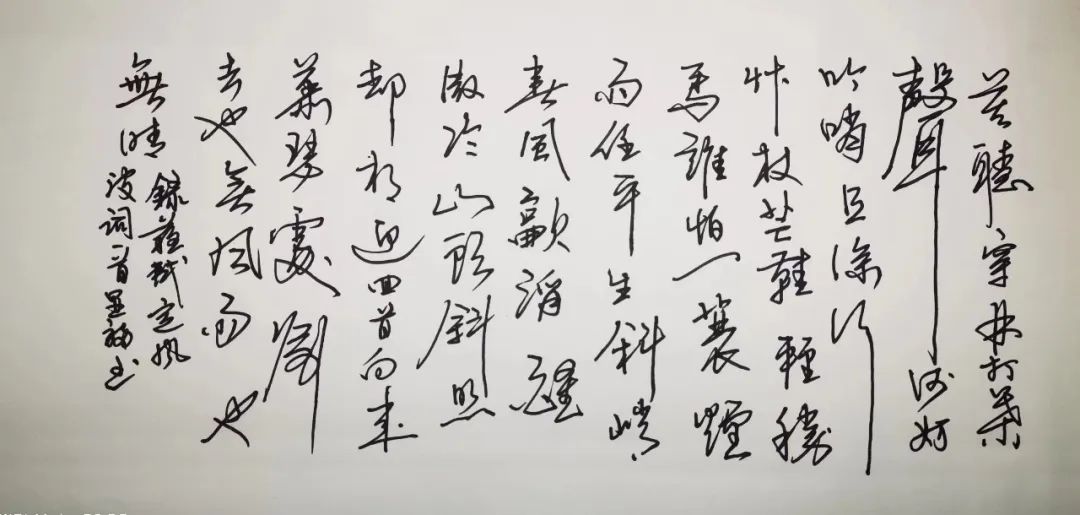 莫聽穿林打葉
聲何妨
吟嘯且徐行
竹杖芒鞋輕勝
馬誰怕一蓑煙
雨任平生料峭
春風吹酒醒
微冷山頭斜照
却相迎回首向来
蕭瑟處歸
去也無風雨也
無晴
錄蘇軾定風
波詞一首